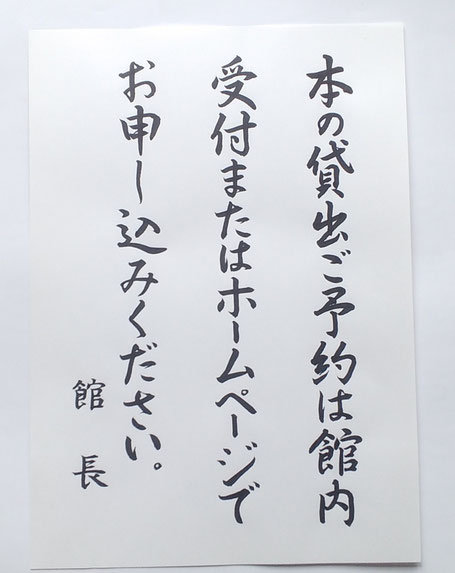 本の貸出ご予約は館内
受付またはホームページで
お申し込みください。
館長